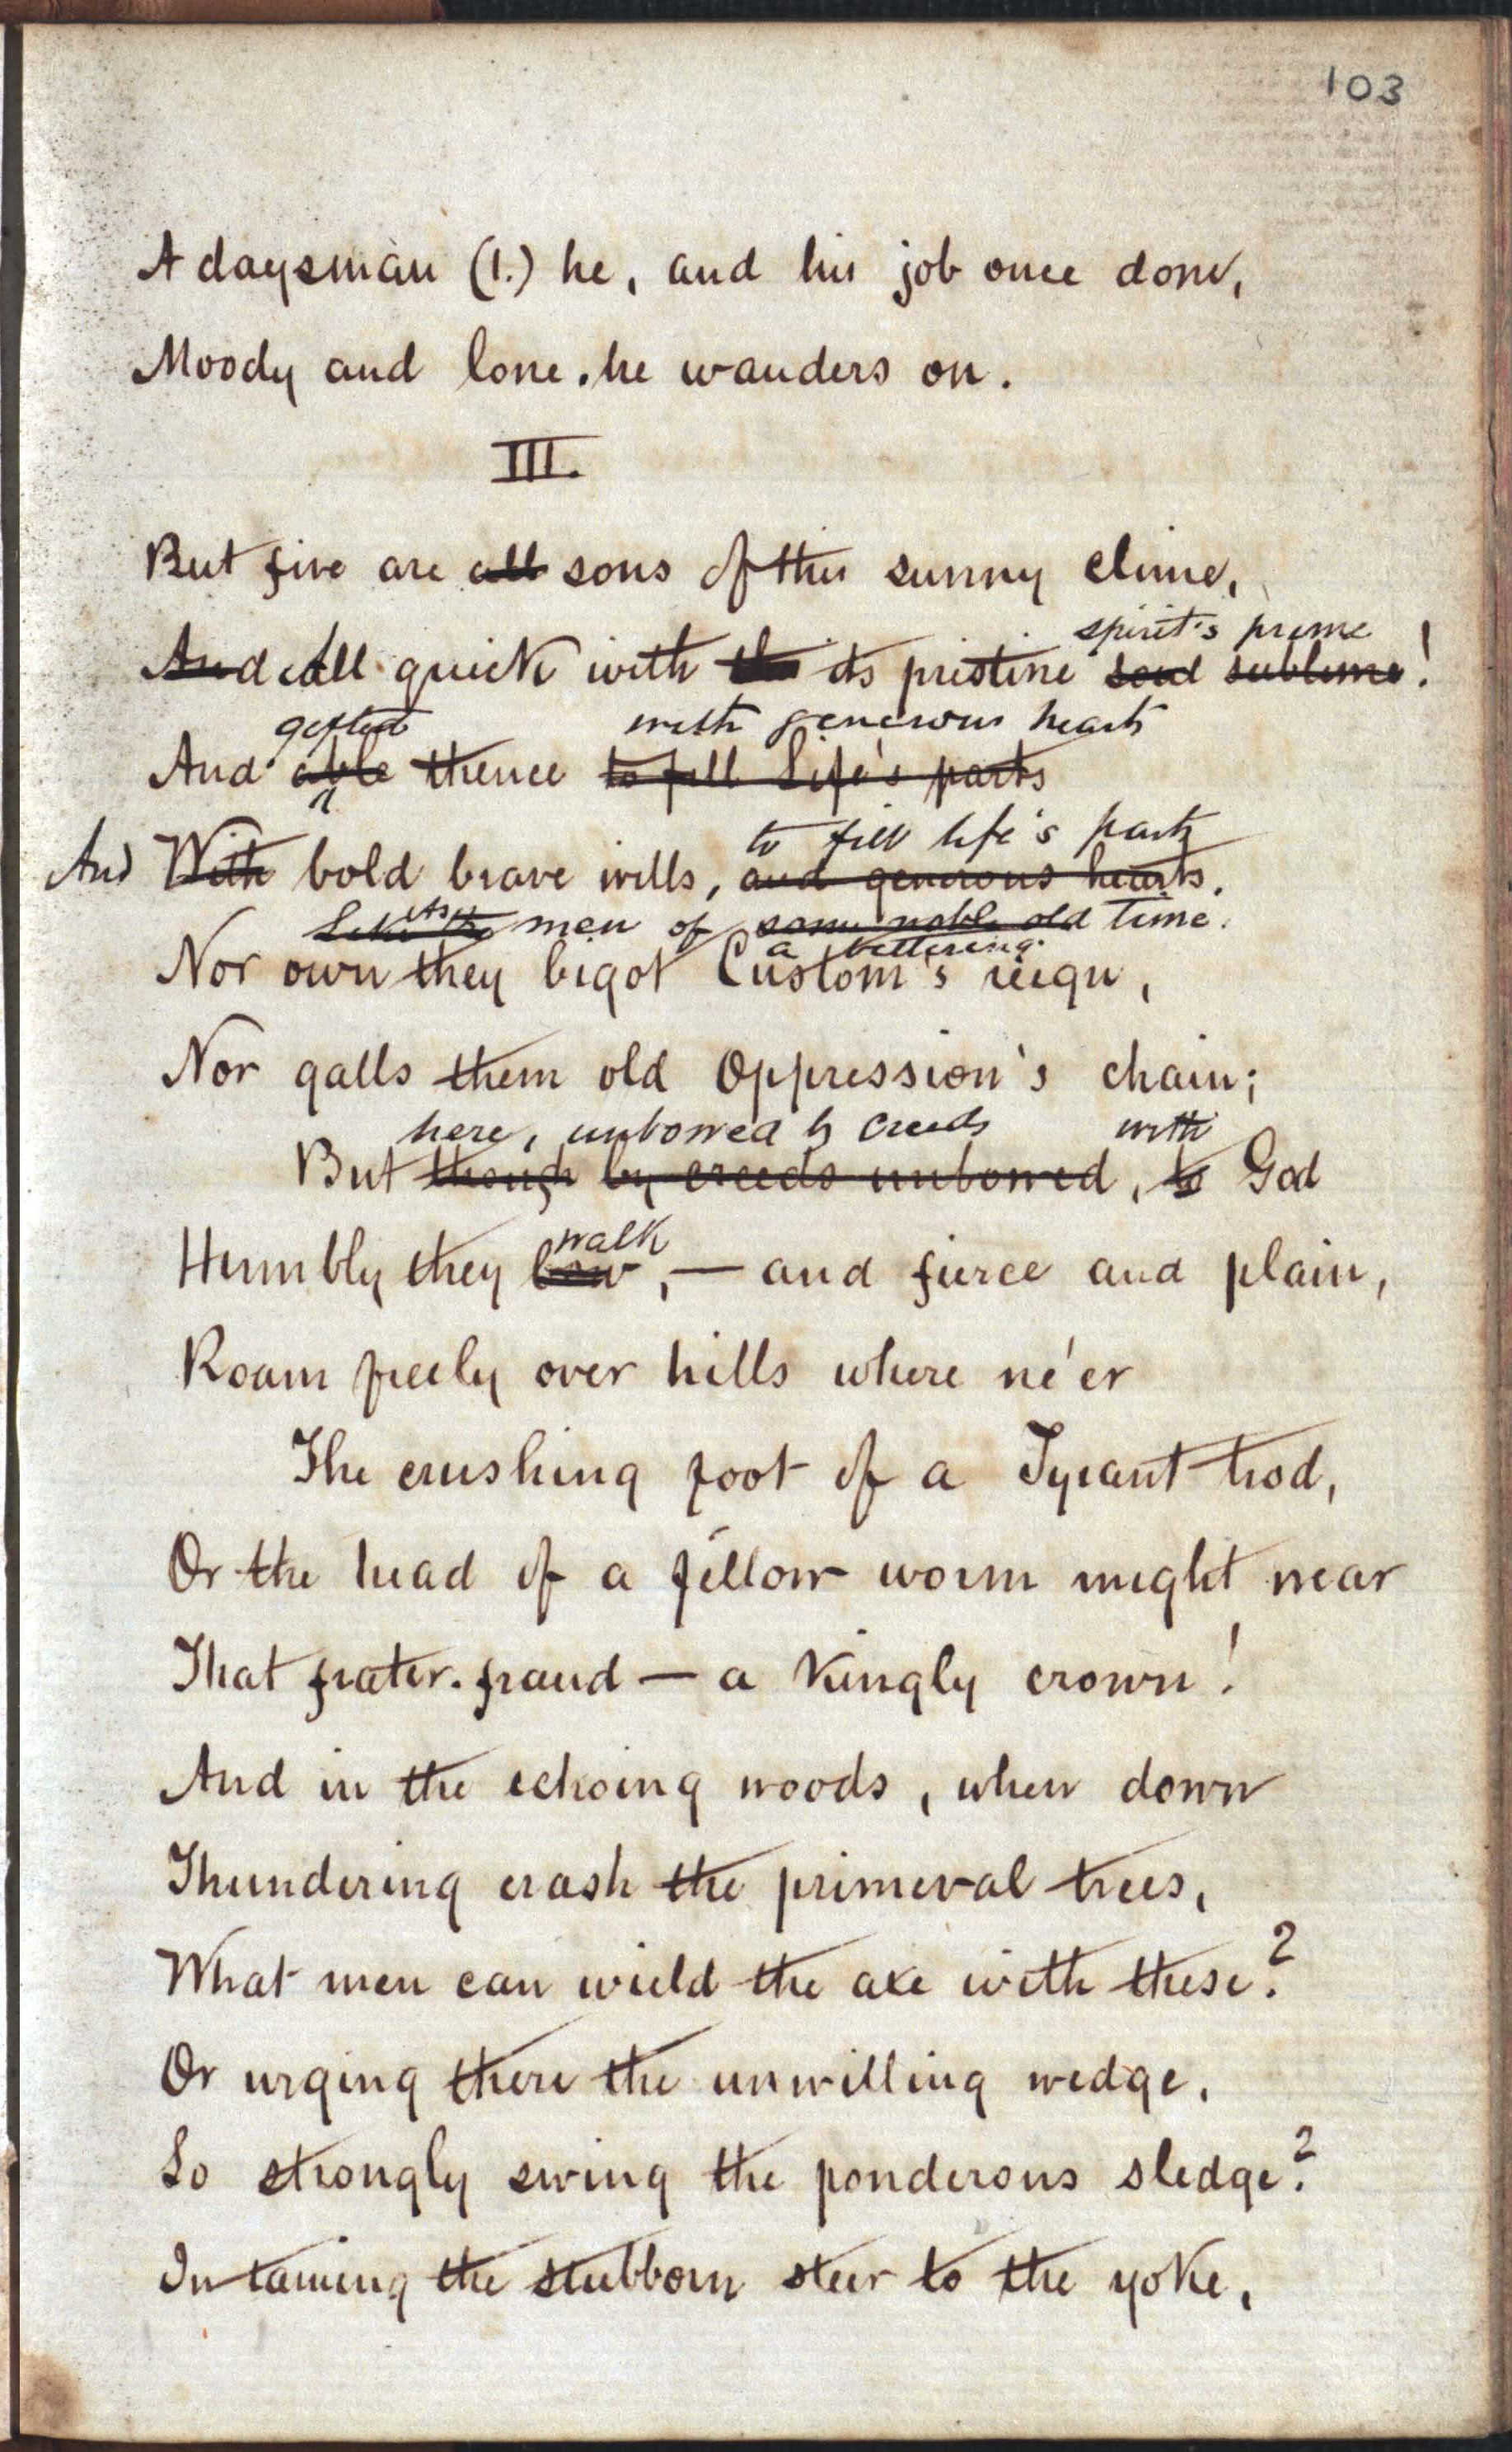 103
A daysman (1.) he, and his job once done,
Moody and lone, he wanders on.
III.
But five are all sons of this sunny clime,
spirit's prime
And All quick with the its pristine soul sublime!
gifted with generous hearts
And able thence to fill Life's parts
to fill life's parts
And With bold brave wills, and generous hearts.
Like the As men of some noble old time.
a bettering
Nor own they bigot Custom's reign,
Nor galls them old Oppression's chain;
here, unbowed by creeds with
But though by creeds unbowed, to God
walk
Humbly they bow, — and fierce and plain,
Roam freely over hills where ne'er
The crushing foot of a Tyrant trod,
Or the head of a fellow worm might wear
That frater-fraud — a kingly crown!
And in the echoing woods, when down
Thundering crash the primeval trees,
What men can wield the axe with these?
Or urging there the unwilling wedge,
So strongly swing the ponderous sledge?
In taming the stubborn steer to the yoke,